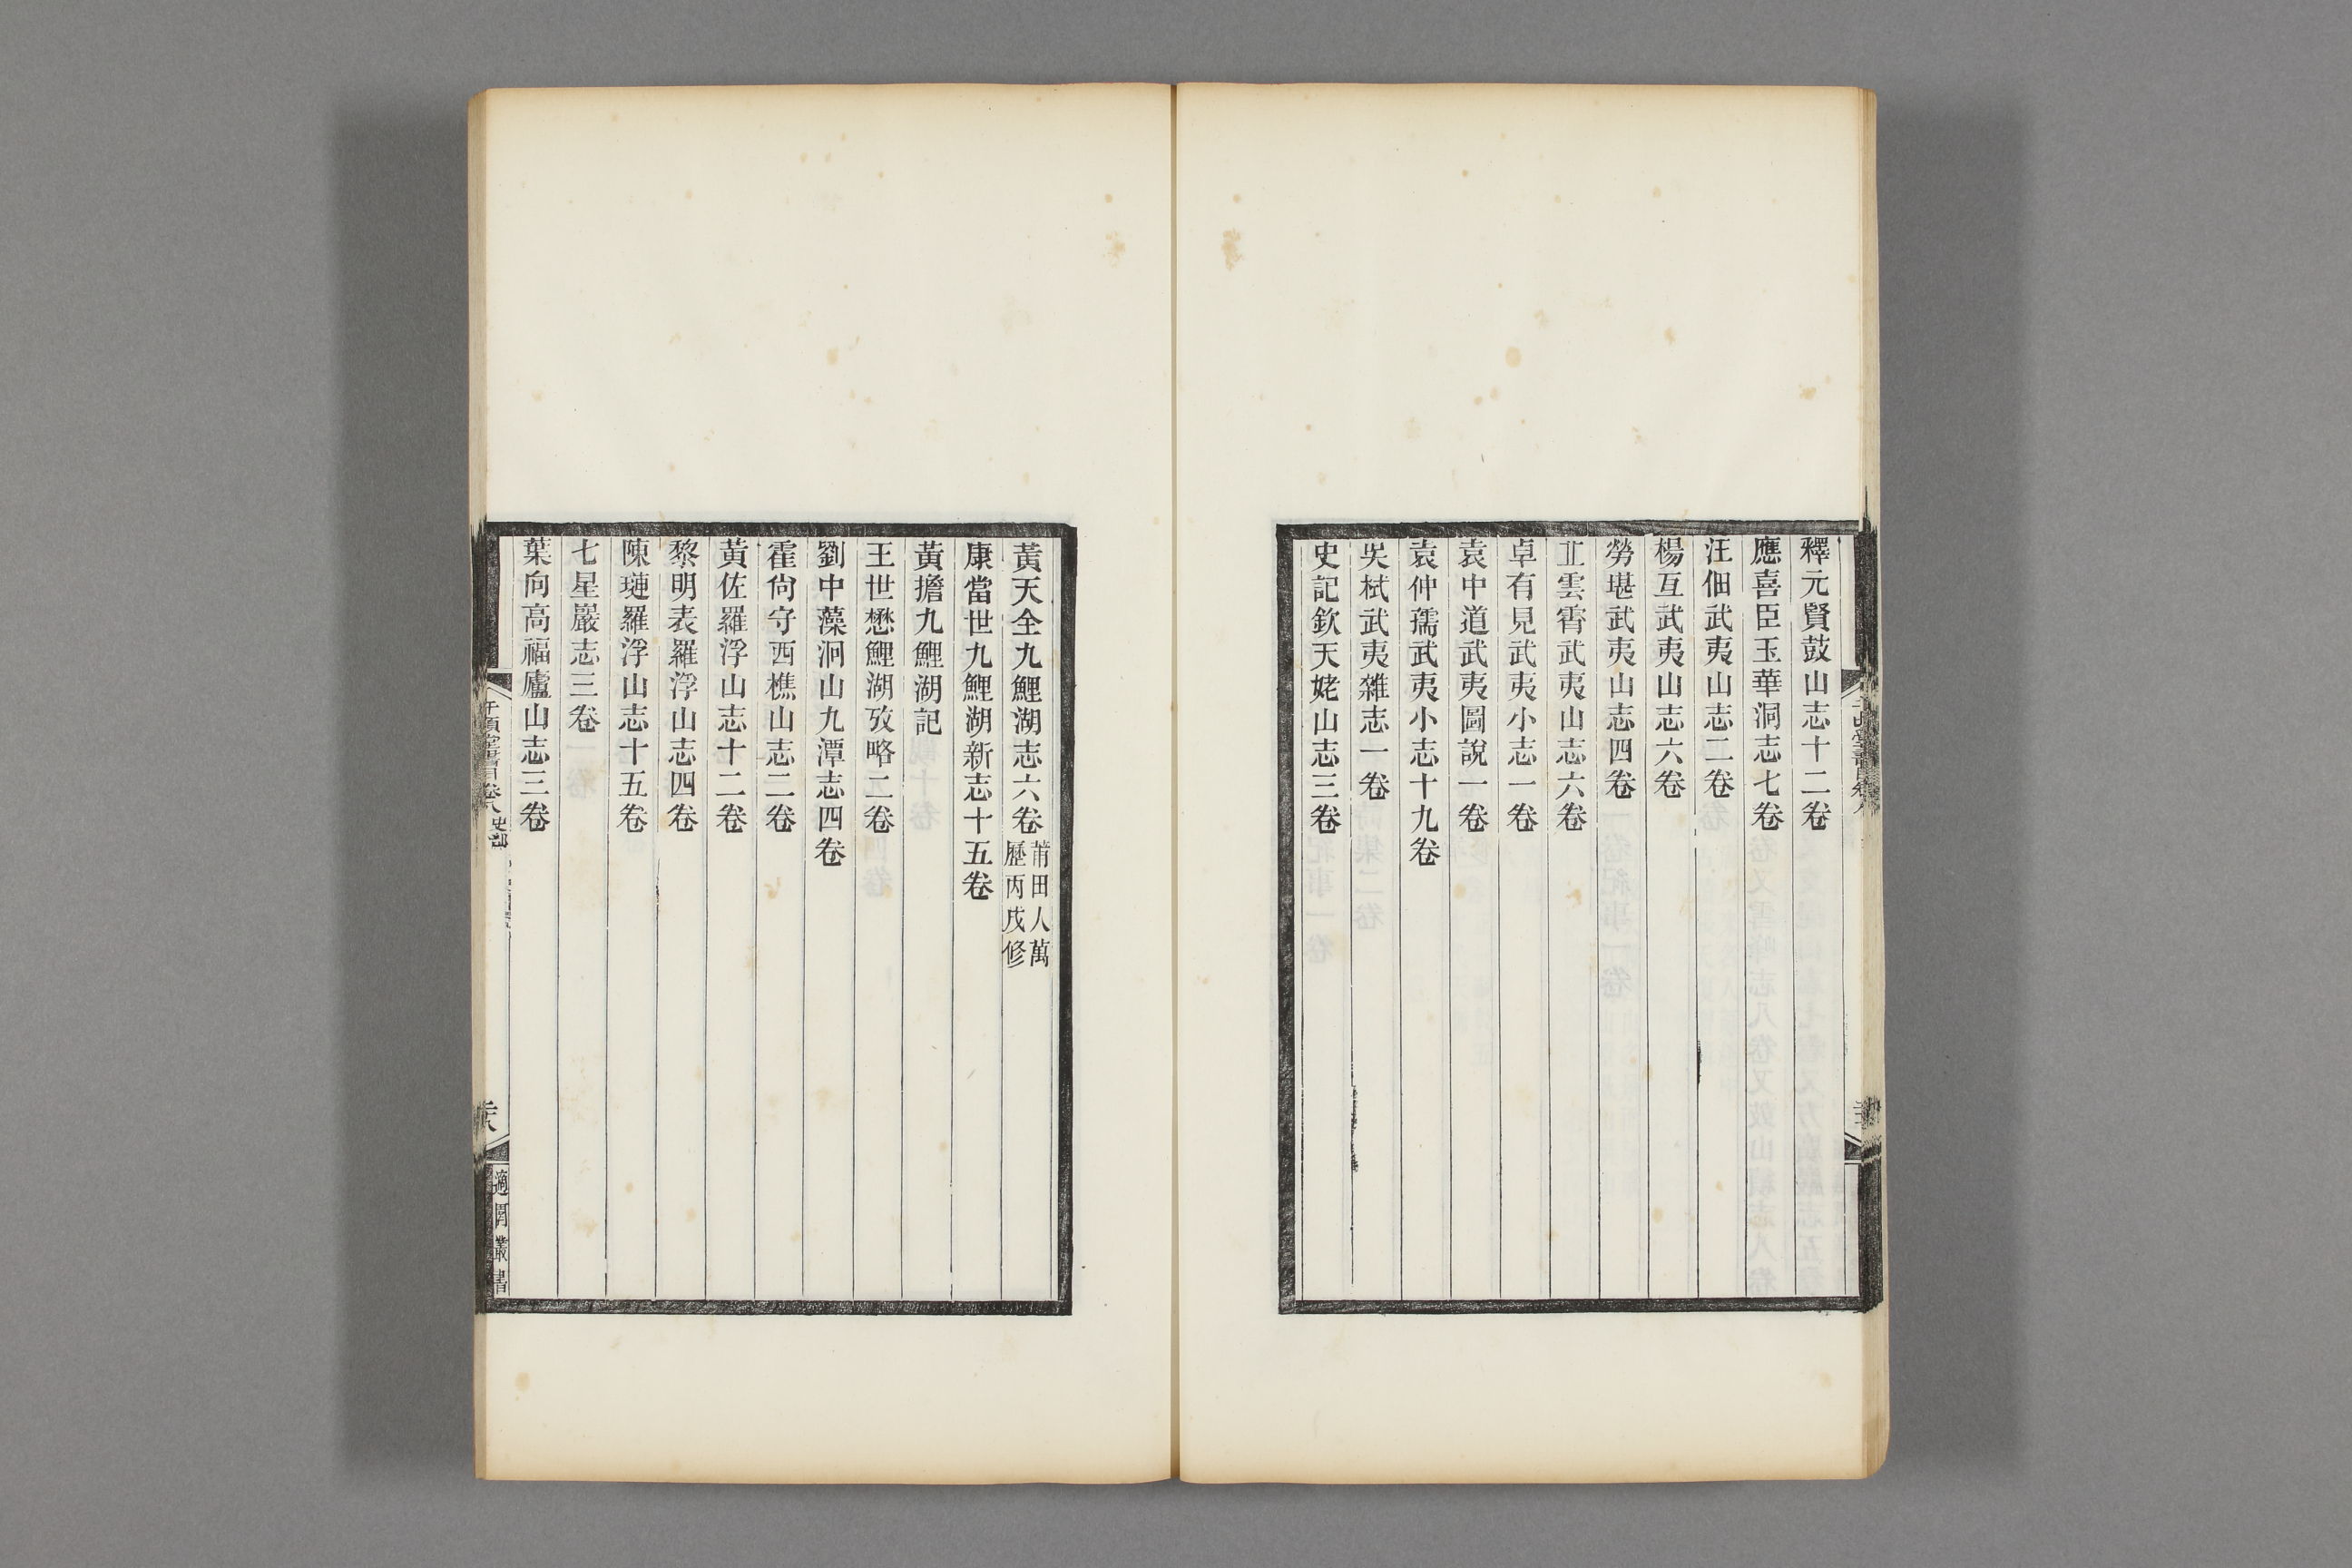 釋元賢鼓山志十二卷
應喜臣玉華洞志七卷
汪佃武夷山志二卷
楊亙武夷山志六卷
勞堪武夷山志四卷
丘雲霄武夷山志六卷
卓有見武夷小志一卷
袁中道武夷圖說一卷
袁仲孺武夷小志十九卷
吳栻武夷雜志一卷
史記欽天姥山志三卷
黃天全九鯉湖志六卷莆田人萬
歷丙戌修
康當世九鯉湖新志十五卷
黃擔九鯉湖記
王世懋鯉湖攷略二卷
劉中藻洞山九潭志四卷
霍尙守西樵山志二卷
黃佐羅浮山志十二卷
黎明表羅浮山志四卷
陳璉羅浮山志十五卷
七星巖志三卷
葉向高福廬山志三卷
千頃堂書目卷八 史部
二十八
適園叢書